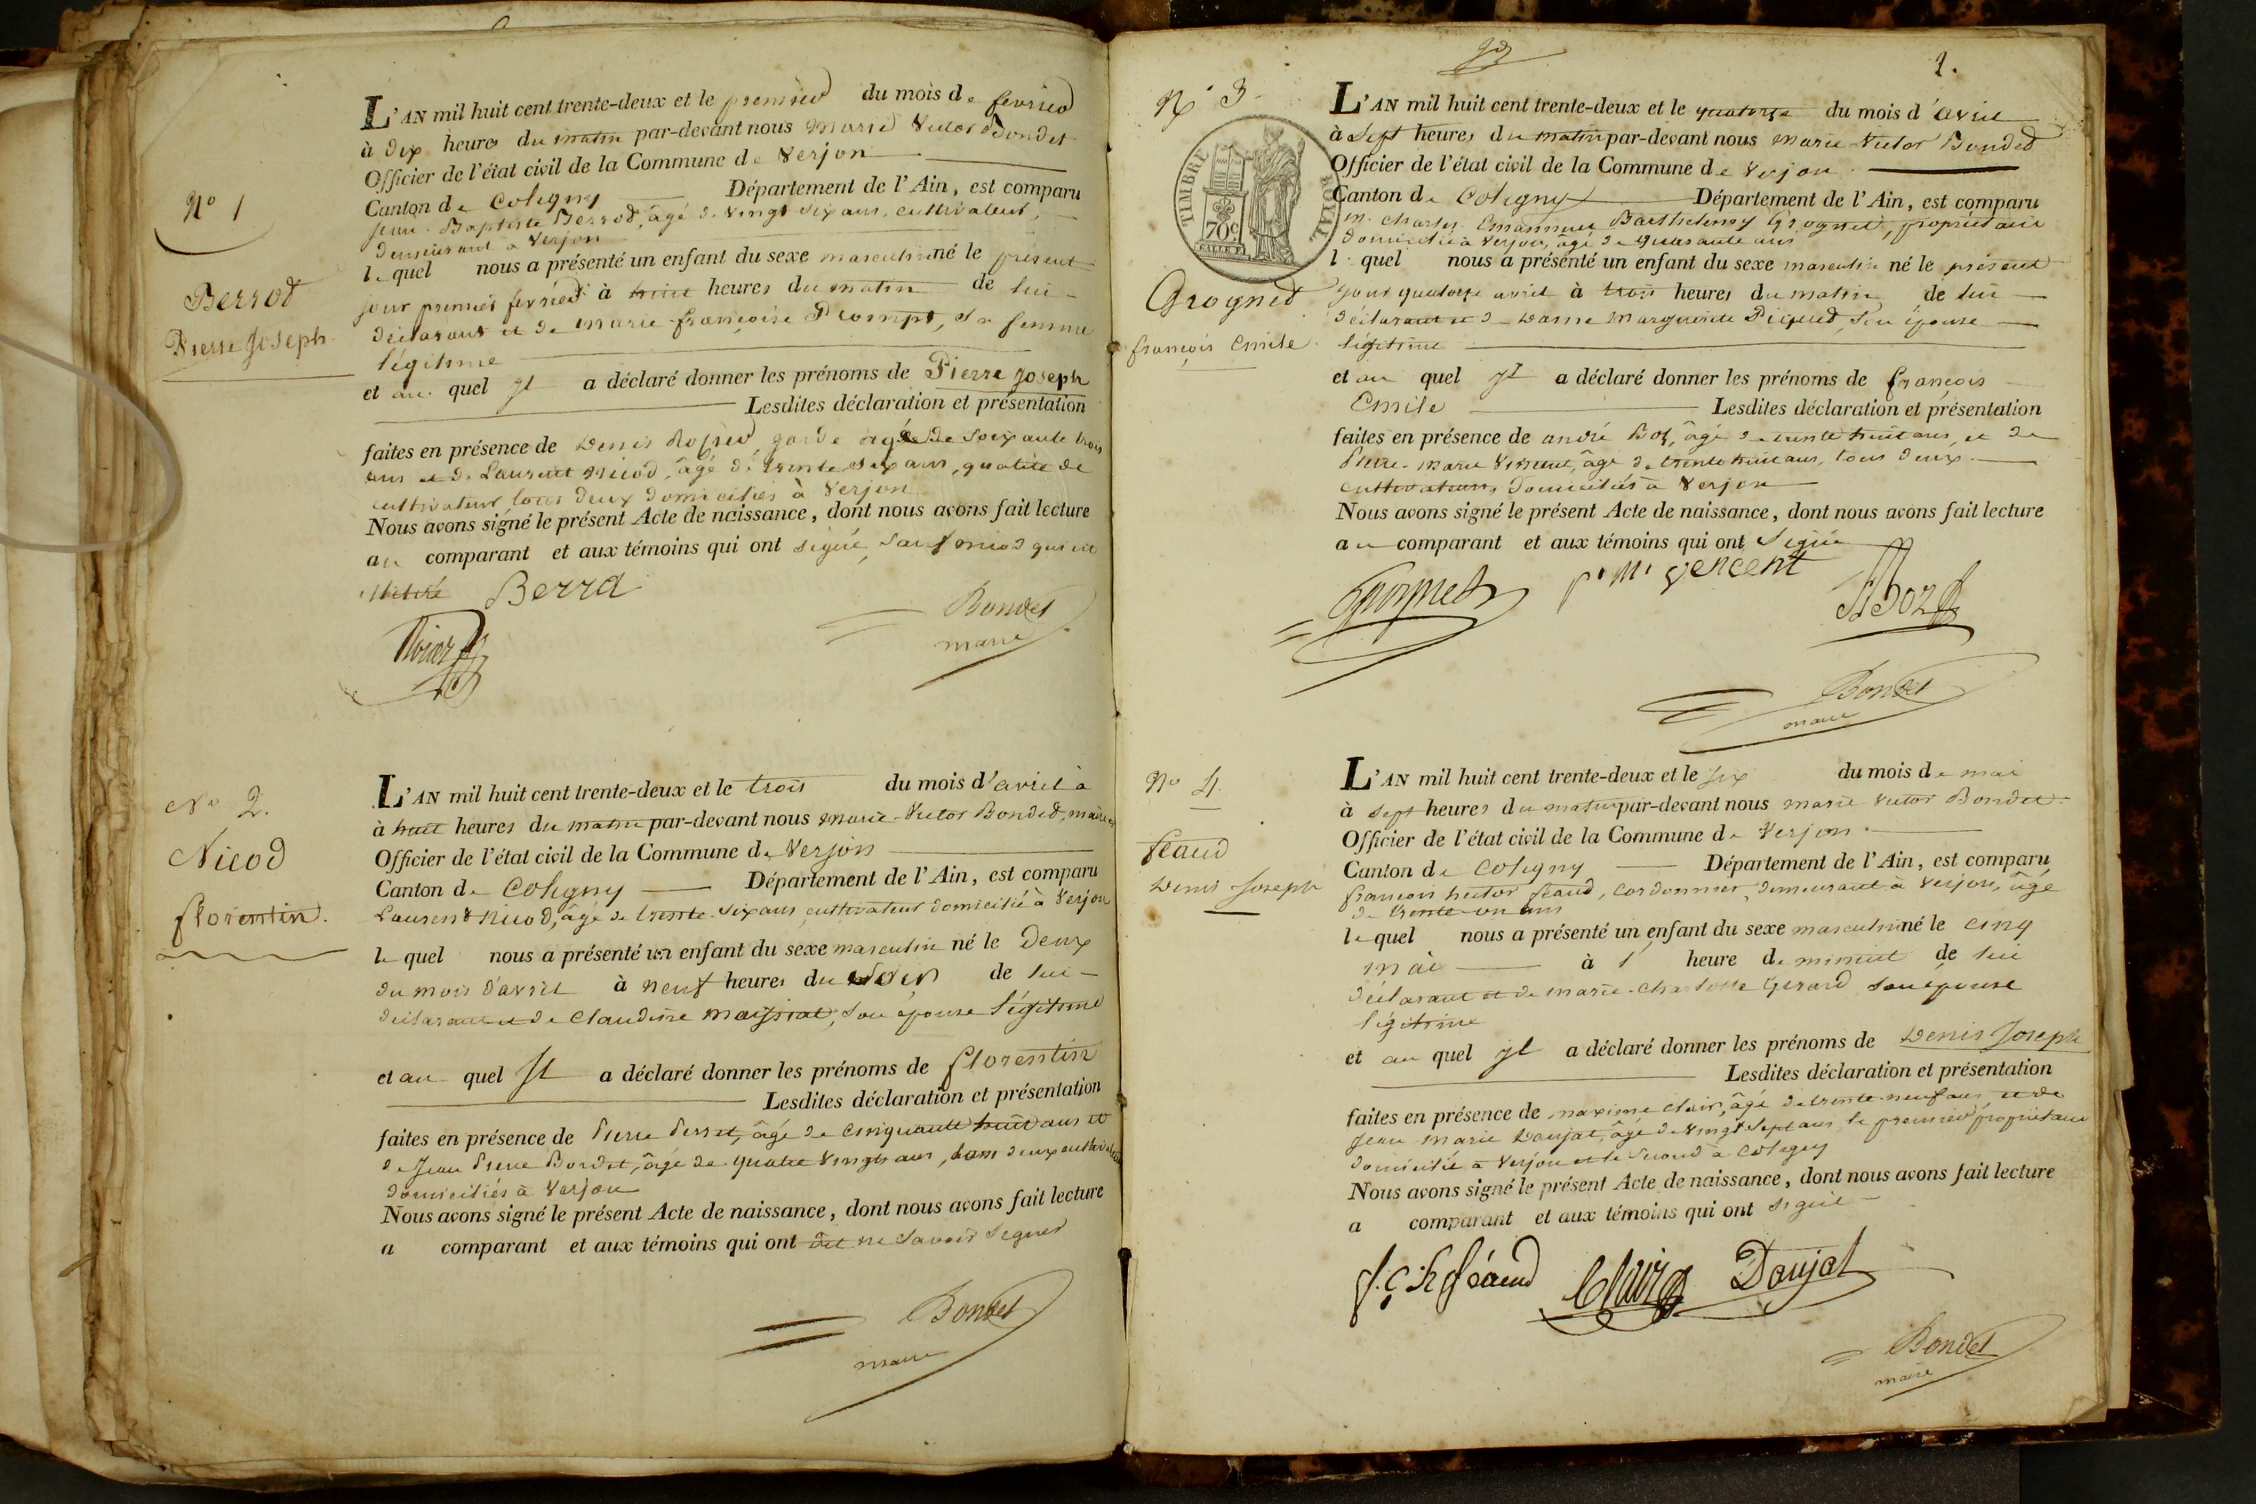 N° 1
Berrod
Pierre Joseph
L'AN mil huit cent trente-deux et le premier du mois de fevrier
à dix heures du matin par-devant nous Marie Victor Bondet
Officier de l'état civil de la Commune de Verjon
Canton de Coligny Département de l'Ain, est comparu
Jean-Baptiste Berrod, âgé de vingt six ans, cultivateur,
demeurant à Verjon
lequel nous a présenté un enfant du sexe masculin né le présent
jour premier fevrier à huit heures du matin de lui
déclarant et de Marie françoise Prompt, sa femme
légitime
et au quel il a déclaré donner les prénoms de Pierre Joseph
Lesdites déclaration et présentation
faites en présence de Denis garde agé de soixante trois
ans et de Laurent Nicod, âgé de trente six ans, qualité de
cultivateur, tous deux domiciliés à Verjon
Nous avons signé le présent Acte de naissance, dont nous avons fait lecture
au comparant et aux témoins qui ont signé, sauf Nicod qui est
illetéré Berrd
Bondet
maire
N° 2.
Nicod
florentin.
L'AN mil huit cent trente-deux et le trois du mois d'avril à
à huit heures du matin par-devant nous Marie-Victor Bondet, maire et
Officier de l'état civil de la Commune de Verjon
Canton de Coligny Département de l'Ain, est comparu
Laurent Nicod, âgé de trente-six ans, cultivateur domicilié à Verjon
lequel nous a présenté un enfant du sexe masculin né le Deux
du mois d'avril à neuf heures du soir de lui
déclarant et de Claudine Maissiat, son épouse légitime
et au quel Il a déclaré donner les prénoms de florentin
Lesdites déclaration et présentation
faites en présence de Pierre Perret, âgé de cinquante huit ans et
de Jean Pierre Bondet, âgé de quatre vingts ans, tous deux cultivateurs
domiciliés à Verjon
Nous avons signé le présent Acte de naissance, dont nous avons fait lecture
a comparant et aux témoins qui ont dit ne savoir signer
Bondet
maire
2.
N° 3
TIMBRE ROYAL
70c
Grognet
françois Emile
L'AN mil huit cent trente-deux et le quatorze du mois d'avril
à sept heures du matin par-devant nous Marie-Victor Bondet
Officier de l'état civil de la Commune de Verjon
Canton de Coligny Département de l'Ain, est comparu
M. Charles Emannuel Barthelemy Grognet, propriétaire
domicilié à Verjon, âgé de quarante ans
lequel nous a présenté un enfant du sexe masculin né le présent
jour quatorze avril à trois heures du matin de lui
déclarant et de Dame Marguerite Piquet, son épouse
légitime
et au quel il a déclaré donner les prénoms de françois
Emile Lesdites déclaration et présentation
faites en présence de andré Boz, âgé de trente huit ans, et de
Pierre-Marie Vincent, âgé de trente huit ans, tous deux
cultivateurs, domiciliés à Verjon
Nous avons signé le présent Acte de naissance, dont nous avons fait lecture
au comparant et aux témoins qui ont signé
Grognet p. m. vencent A Boz
Bondet
maire
N° 4.
feaud
Denis Joseph
L'AN mil huit cent trente-deux et le six du mois de mai
à sept heures du matin par-devant nous Marie Victor Bondet
Officier de l'état civil de la Commune de Verjon
Canton de Coligny Département de l'Ain, est comparu
françois hector feaud, cordonnier, demeurant à Verjon, âgé
de trente-un ans
lequel nous a présenté un enfant du sexe masculin né le cinq
mai à 1 heure de minuit de lui
déclarant et de Marie-Charlotte Gerard son épouse
légitime
et au quel il a déclaré donner les prénoms de Denis Joseph
Lesdites déclaration et présentation
faites en présence de Maxime Clair, âgé de trente-neuf ans et de
Jean Marie Doujat, âgé de vingt sept ans, le premier propriétaire
domicilié à Verjon et le second à Coligny
Nous avons signé le présent Acte de naissance, dont nous avons fait lecture
a comparant et aux témoins qui ont signé
f.ç. h féaud Clair Doujat
Bondet
maire